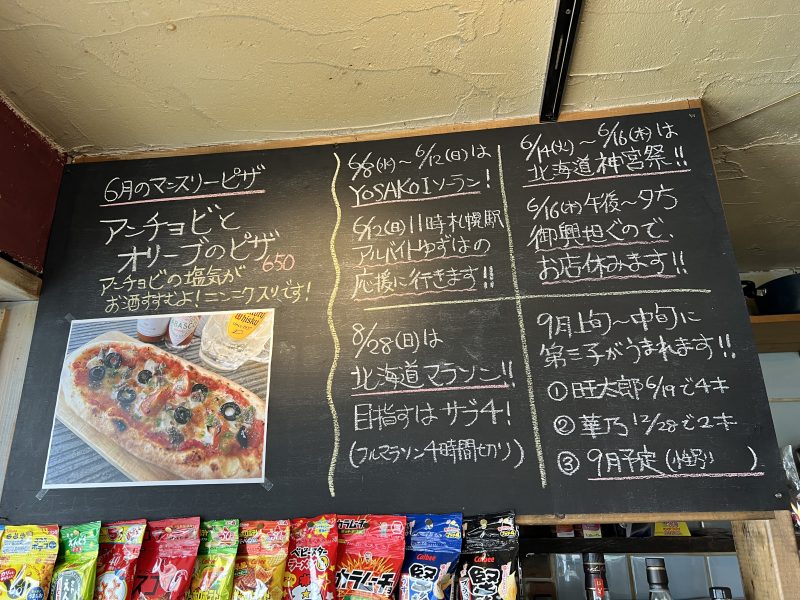 6月のマンスリーピザ
アンチョビと
オリーブのピザ
650
アンチョビの塩気が
お酒すすむよ！ニンニクスリです！
6/8(水)〜6/12(日)は
YOSAKOIソーラン！
6/12(日)11時札幌駅
アルバイトゆずはの
応援に行きます!!
8/28(日)は
北海道マラソン!!
目指すはサブ4！
(フルマラソン4時間切り)
6/14(火)〜6/16(木)は
北海道神宮祭!!
6/16(木)午後〜夕方
御輿担ぐので、
お店休みます!!
9月上旬〜中旬に
第三子がうまれます!!
①旺太郎6/19で4才
②華乃12/28で2才
③9月予定(性別 )
Calbee
Calbee
カラムーチョ
ベビースター
ラーメン